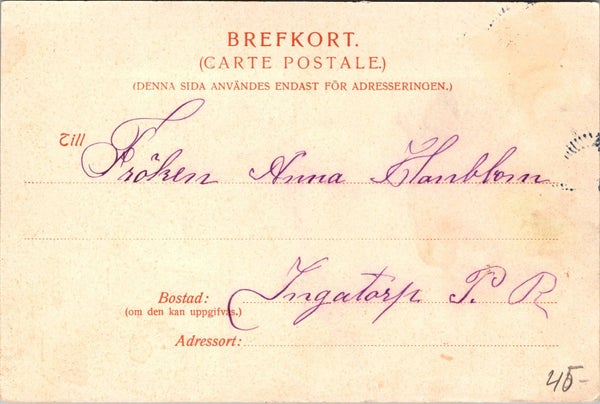 BREFKORT.
(CARTE POSTALE.)
(DENNA SIDA ANVÄNDES ENDAST FÖR ADRESSERINGEN.)
Till Fröken Anna Hanblom
Bostad: Ingatorp P. R
(om den kan uppgifvas.)
Adressort:
45-